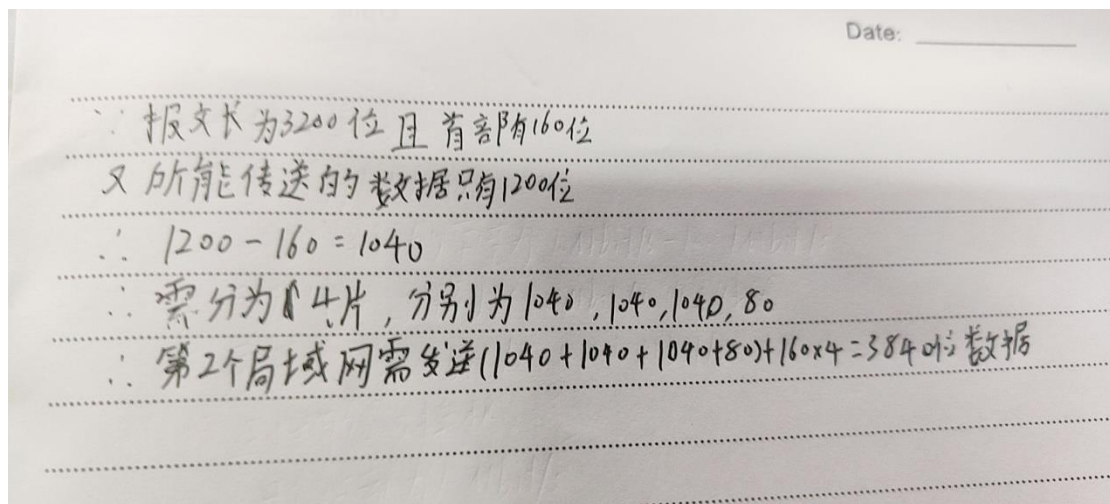 Date:
∵ 报文长为3200位且首部有160位
又所能传送的数据只有1200位
∴ 1200-160=1040
∴ 需分为4片,分别为1040,1040,1040,80
∴ 第2个局域网需发送(1040+1040+1040+80)+160×4=3840位数据